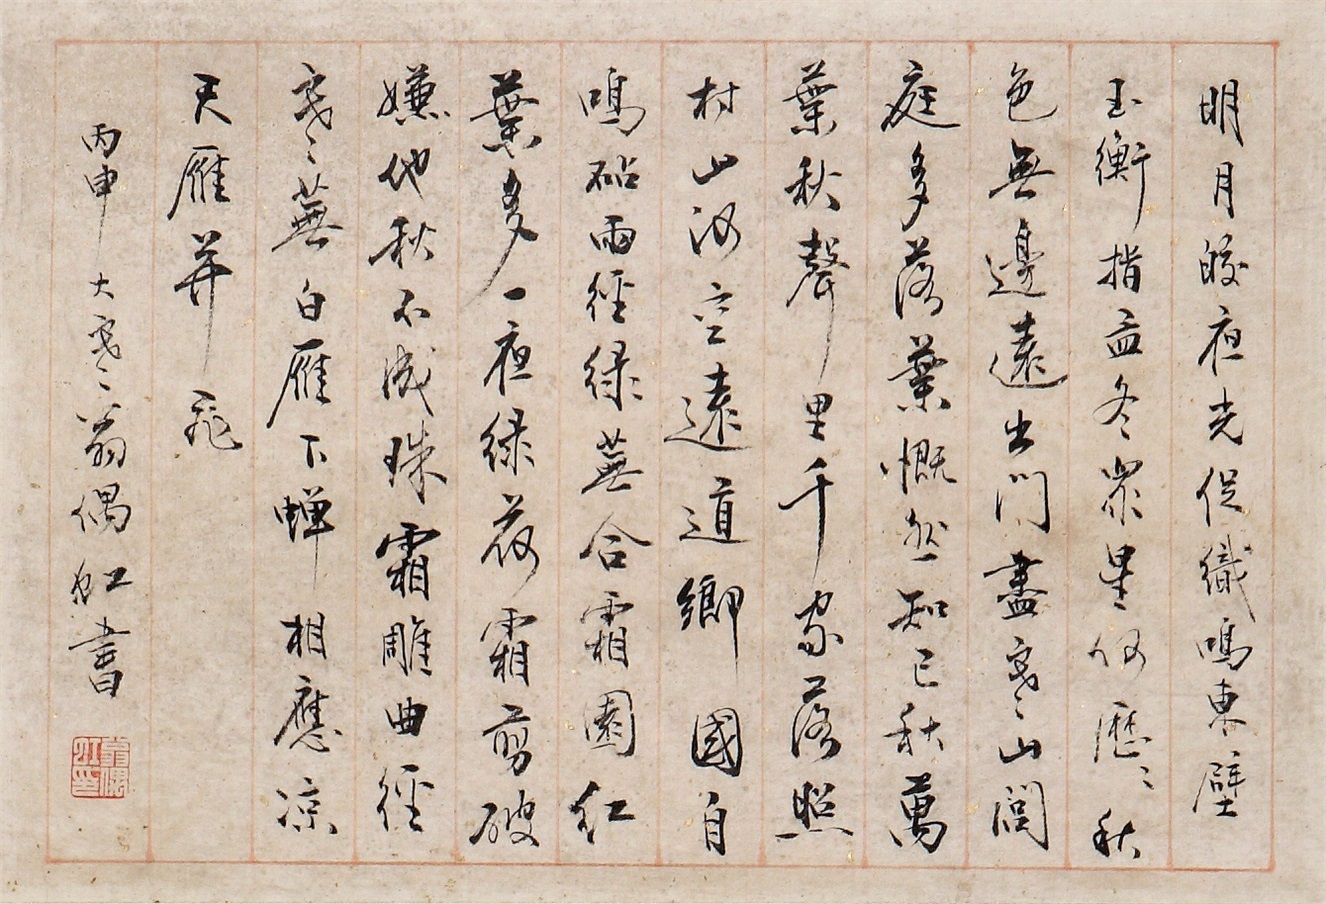 明月皎夜光促織鳴東壁
玉衡指孟冬眾星何歷〻秋
色無邊遠出門盡寒山閒
庭多落葉慨然知已秋萬
葉秋聲里千家落照
村山河空遠道鄉國自
鳴砧雨徑綠蕪合霜園紅
葉多一夜綠荷霜剪破
嫌他秋不成珠霜雕曲徑
寒蕪白雁下蟬相應涼
天雁并飛
丙申大寒翁偶虹書
翁偶虹印